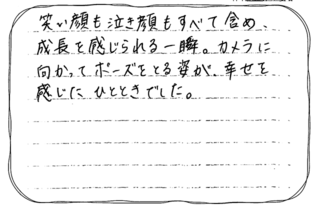 笑い顔も泣き顔もすべて含め、
成長を感じられる一瞬。カメラに
向かってポーズをとる姿が、幸せを
感じた ひとときでした。